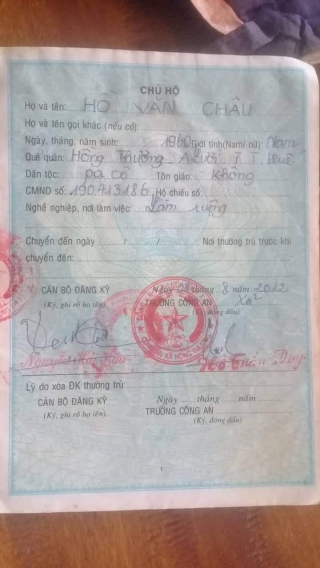 CHỦ HỘ
Họ và tên: HỒ VĂN CHÂU
Họ và tên gọi khác (nếu có):
Ngày, tháng, năm sinh: 1960 Giới tính(Nam/ nữ): Nam
Quê quán: Hồng Thượng A Lưới T.T. Huế
Dân tộc: pa cô Tôn giáo: Không
CMND số: 190413186 Hộ chiếu số:
Nghề nghiệp, nơi làm việc: Làm ruộng
Chuyển đến ngày / / Nơi thường trú trước khi
chuyển đến:
CÁN BỘ ĐĂNG KÝ Ngày tháng 8 năm 2012
(Ký, ghi rõ họ tên) TRƯỞNG CÔNG AN Xã
(Ký, đóng dấu)
Lý do xóa ĐK thường trú:
CÁN BỘ ĐĂNG KÝ Ngày tháng năm
(Ký, ghi rõ họ tên) TRƯỞNG CÔNG AN
(Ký, đóng dấu)
1